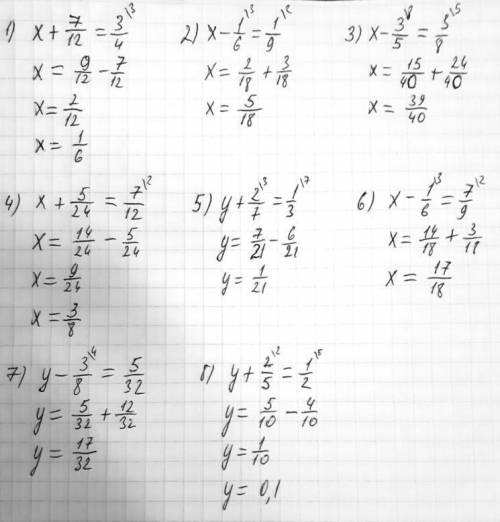 1) x + 7/12 = 3/4 \3
x = 9/12 - 7/12
x = 2/12
x = 1/6
2) x - 1/6 \3 = 1/9 \2
x = 2/18 + 3/18
x = 5/18
3) x - 3/5 \8 = 3/8 \5
x = 15/40 + 24/40
x = 39/40
4) x + 5/24 = 7/12 \2
x = 14/24 - 5/24
x = 9/24
x = 3/8
5) y + 2/7 \3 = 1/3 \7
y = 7/21 - 6/21
y = 1/21
6) x - 1/6 \3 = 7/9 \2
x = 14/18 + 3/18
x = 17/18
7) y - 3/8 \4 = 5/32
y = 5/32 + 12/32
y = 17/32
8) y + 2/5 \2 = 1/2 \5
y = 5/10 - 4/10
y = 1/10
y = 0,1